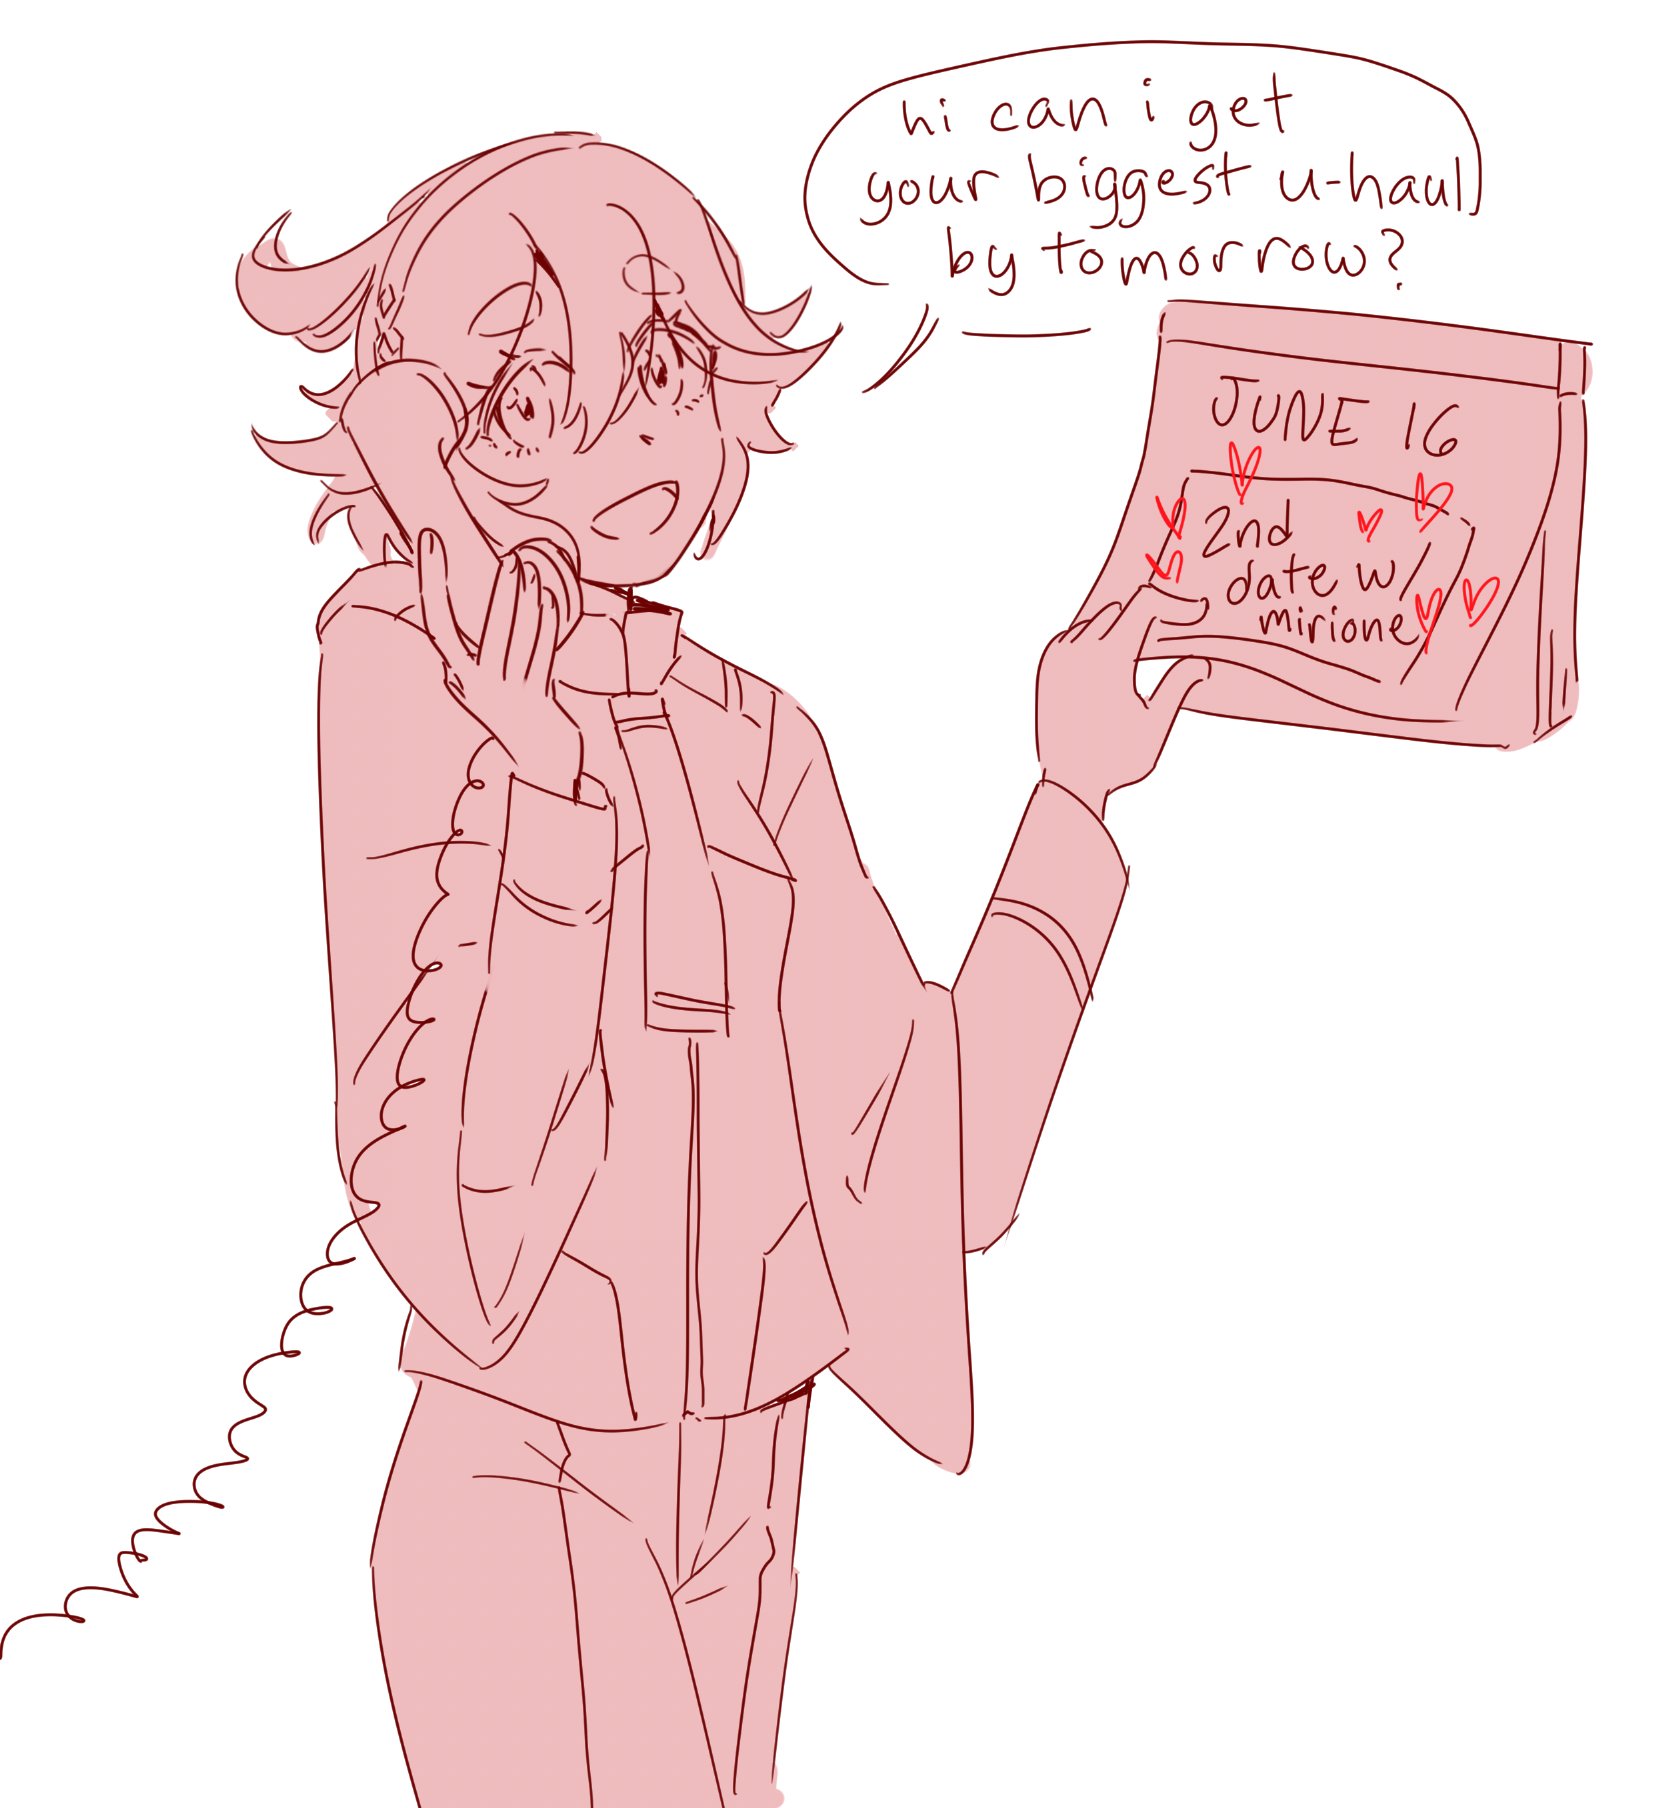 hi can i get
your biggest u-haul
by tomorrow?
JUNE 16
2nd
date w/
mirione